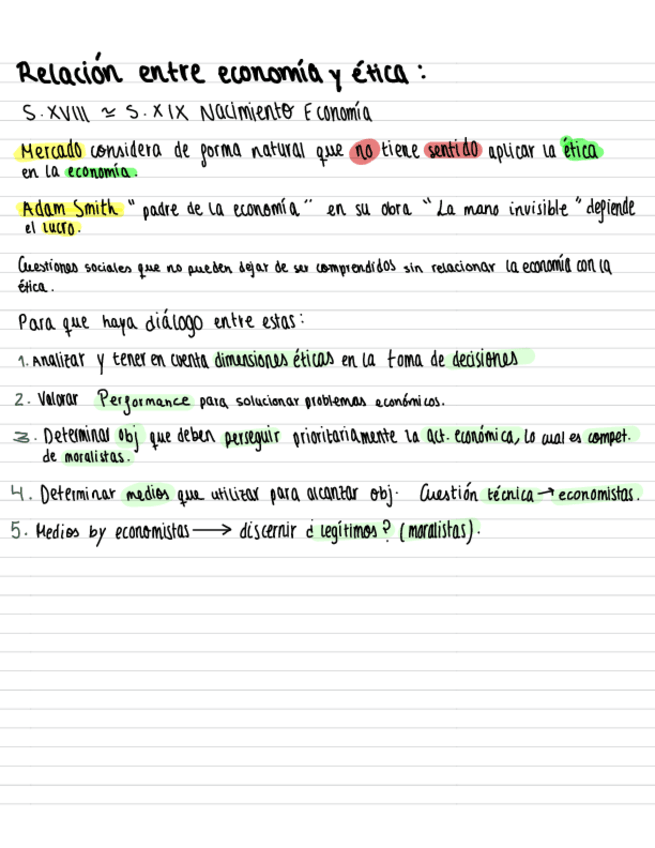 Relación entre economía y ética:
S.XVIII ≃ S.XIX Nacimiento Economía
Mercado considera de forma natural que no tiene sentido aplicar la ética
en la economía.
Adam Smith "padre de la economía" en su obra "La mano invisible" defiende
el lucro.
Cuestiones sociales que no pueden dejar de ser comprendidos sin relacionar la economía con la
ética.
Para que haya diálogo entre estas:
1. Analizar y tener en cuenta dimensiones éticas en la toma de decisiones
2. Valorar Performance para solucionar problemas económicos.
3. Determinar obj que deben perseguir prioritariamente la act. económica, lo cual es compet.
de moralistas.
4. Determinar medios que utilizar para alcanzar obj. Cuestión técnica → economistas.
5. Medios by economistas → discernir ¿legítimos? (moralistas).